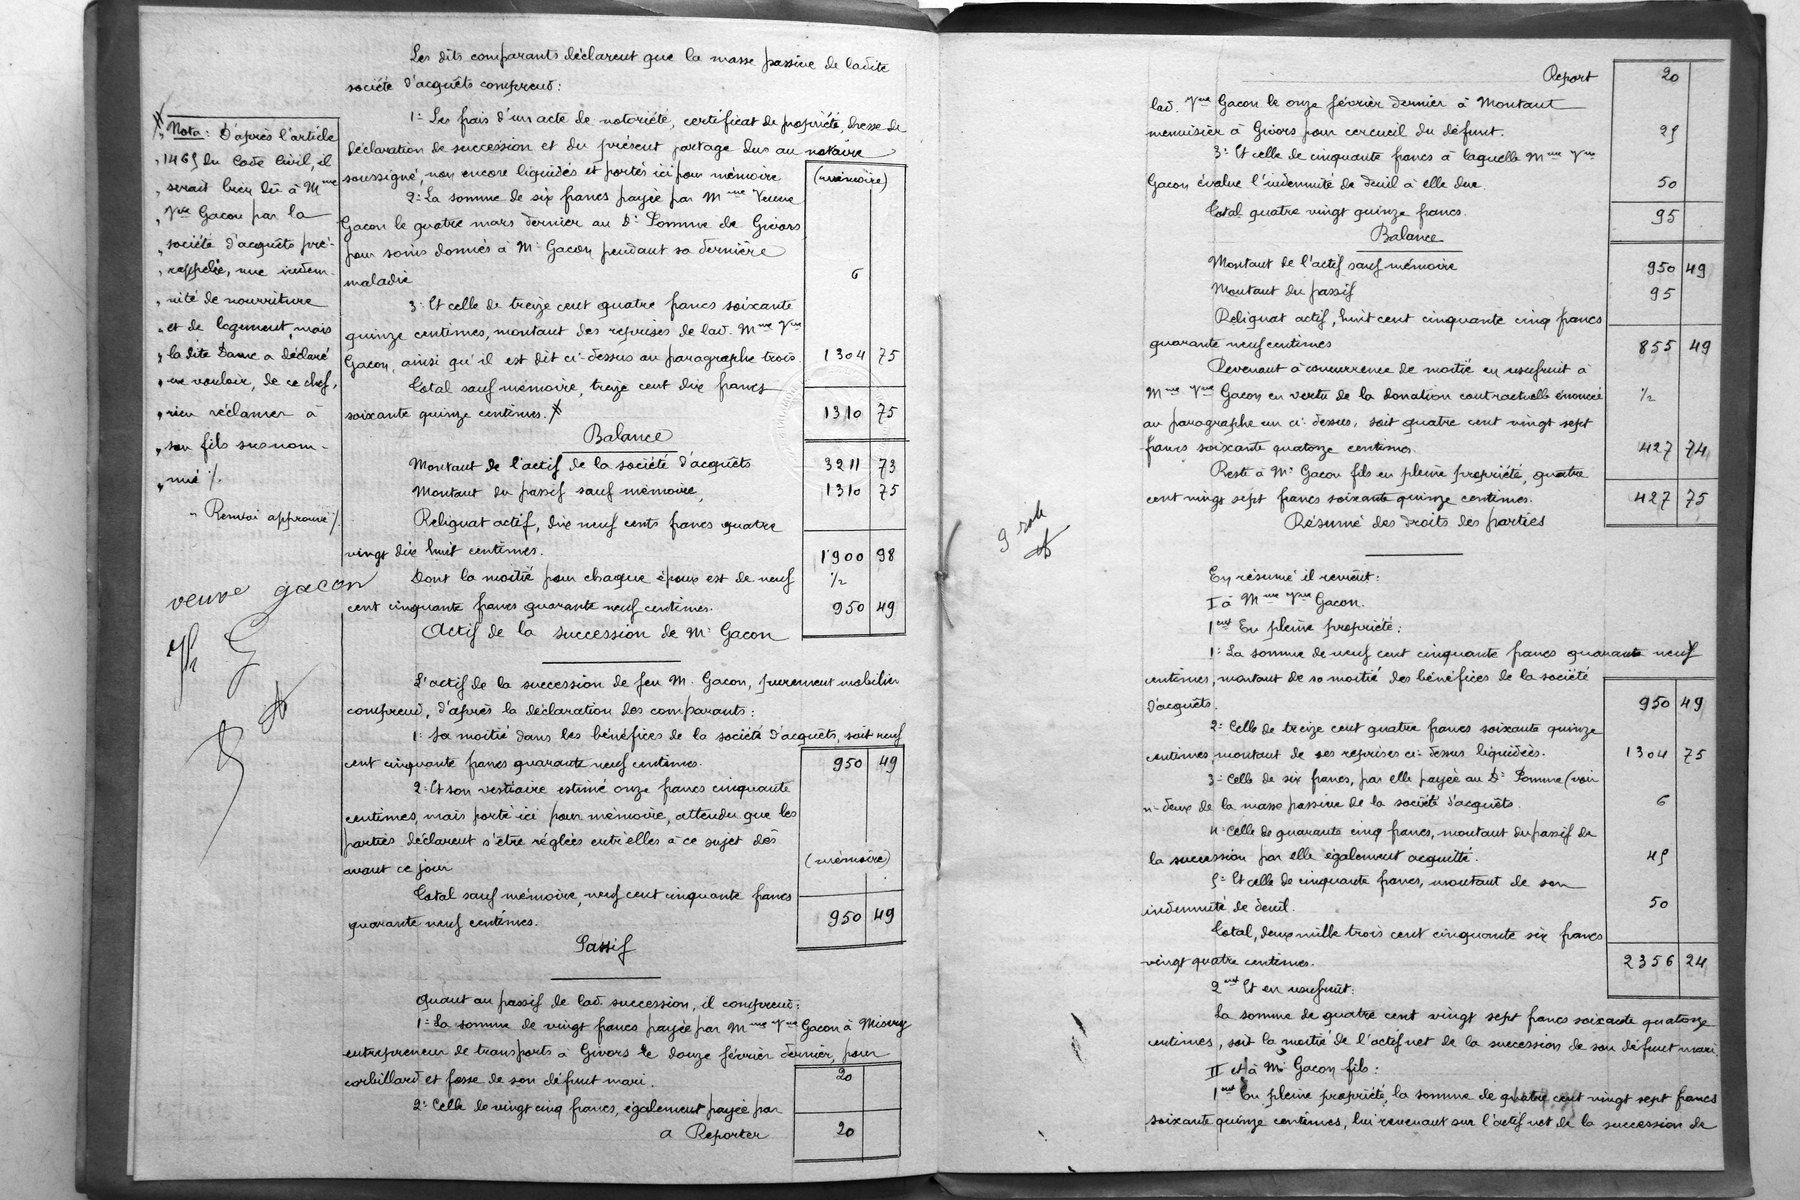 Les dits comparants déclarent que la masse passive de ladite
société d'acquêts comprend :
1º Les frais d'un acte de notoriété, certificat de propriété, dresse de
déclaration de succession et du présent partage dus au notaire
soussigné, non encore liquidés et portés ici pour mémoire (mémoire)
2º La somme de six francs payée par Mme Veuve
Gacon le quatre mars dernier au Dr Pomme de Givors
pour soins donnés à Mr Gacon pendant sa dernière
maladie 6
3º Et celle de treize cent quatre francs soixante
quinze centimes, montant des reprises de lad. Mme Vve
Gacon, ainsi qu'il est dit ci-dessus au paragraphe trois. 1304 75
Total sauf mémoire, treize cent dix francs
soixante quinze centimes. 1310 75
Balance
Montant de l'actif de la société d'acquêts 3211 73
Montant du passif sauf mémoire, 1310 75
Reliquat actif, dix neuf cents francs quatre
vingt dix huit centimes. 1900 98
Dont la moitié pour chaque époux est de neuf 1/2
cent cinquante francs quarante neuf centimes. 950 49
Actif de la succession de Mr Gacon
L'actif de la succession de feu M. Gacon, purement mobilier
comprend, d'après la déclaration des comparants :
1º Sa moitié dans les bénéfices de la société d'acquêts, soit neuf
cent cinquante francs quarante neuf centimes. 950 49
2º Et son vestiaire estimé onze francs cinquante
centimes, mais porté ici pour mémoire, attendu que les
parties déclarent s'être réglées entr'elles à ce sujet dès
avant ce jour (mémoire)
Total sauf mémoire, neuf cent cinquante francs
quarante neuf centimes. 950 49
Passif
Quant au passif de lad succession, il comprend :
1º La somme de vingt francs payée par Mme Vve Gacon à Misery
entrepreneur de transports à Givors le douze février dernier, pour
corbillard et fosse de son défunt mari. 20
2º Celle de vingt cinq francs, également payée par
A Reporter 20
Nota : D'après l'article
1465 du Code Civil, il
serait bien dû à Mme
Vve Gacon par la
société d'acquêts pré-
rappelée, une indem-
nité de nourriture
et de logement, mais
la dite Dame a déclaré
ne vouloir, de ce chef,
rien réclamer à
son fils susnom-
mé /.
Renvoi approuvé /.
veuve gacon
Report 20
lad. Vve Gacon le onze février dernier à Montant
menuisier à Givors pour cercueil du défunt. 25
3º Et celle de cinquante francs à laquelle Mme Vve
Gacon évalue l'indemnité de deuil à elle due. 50
Total quatre vingt quinze francs. 95
Balance
Montant de l'actif sauf mémoire 950 49
Montant du passif 95
Reliquat actif, huit cent cinquante cinq francs
quarante neuf centimes 855 49
Revenant à concurrence de moitié en usufruit à
Mme Vve Gacon en vertu de la donation contractuelle énoncée 1/2
au paragraphe un ci-dessus, soit quatre cent vingt sept
francs soixante quatorze centimes. 427 74
Reste à Mr Gacon fils en pleine propriété, quatre
cent vingt sept francs soixante quinze centimes. 427 75
Résumé des droits des parties
En résumé il revient :
I à Mme Vve Gacon.
1ent En pleine propriété :
1º La somme de neuf cent cinquante francs quarante neuf
centimes, montant de sa moitié des bénéfices de la société
d'acquêts. 950 49
2º Celle de treize cent quatre francs soixante quinze
centimes, montant de ses reprises ci-dessus liquidées. 1304 75
3º Celle de six francs, par elle payée au Dr Pomme (voir
nº deux de la masse passive de la société d'acquêts. 6
4º Celle de quarante cinq francs, montant du passif de
la succession par elle également acquitté. 45
5º Et celle de cinquante francs, montant de son
indemnité de deuil. 50
Total, deux mille trois cent cinquante six francs
vingt quatre centimes. 2356 24
2ent Et en usufruit :
La somme de quatre cent vingt sept francs soixante quatorze
centimes, soit la moitié de l'actif net de la succession de son défunt mari.
II et à Mr Gacon fils :
1ent En pleine propriété, la somme de quatre cent vingt sept francs
soixante quinze centimes, lui revenant sur l'actif net de la succession de